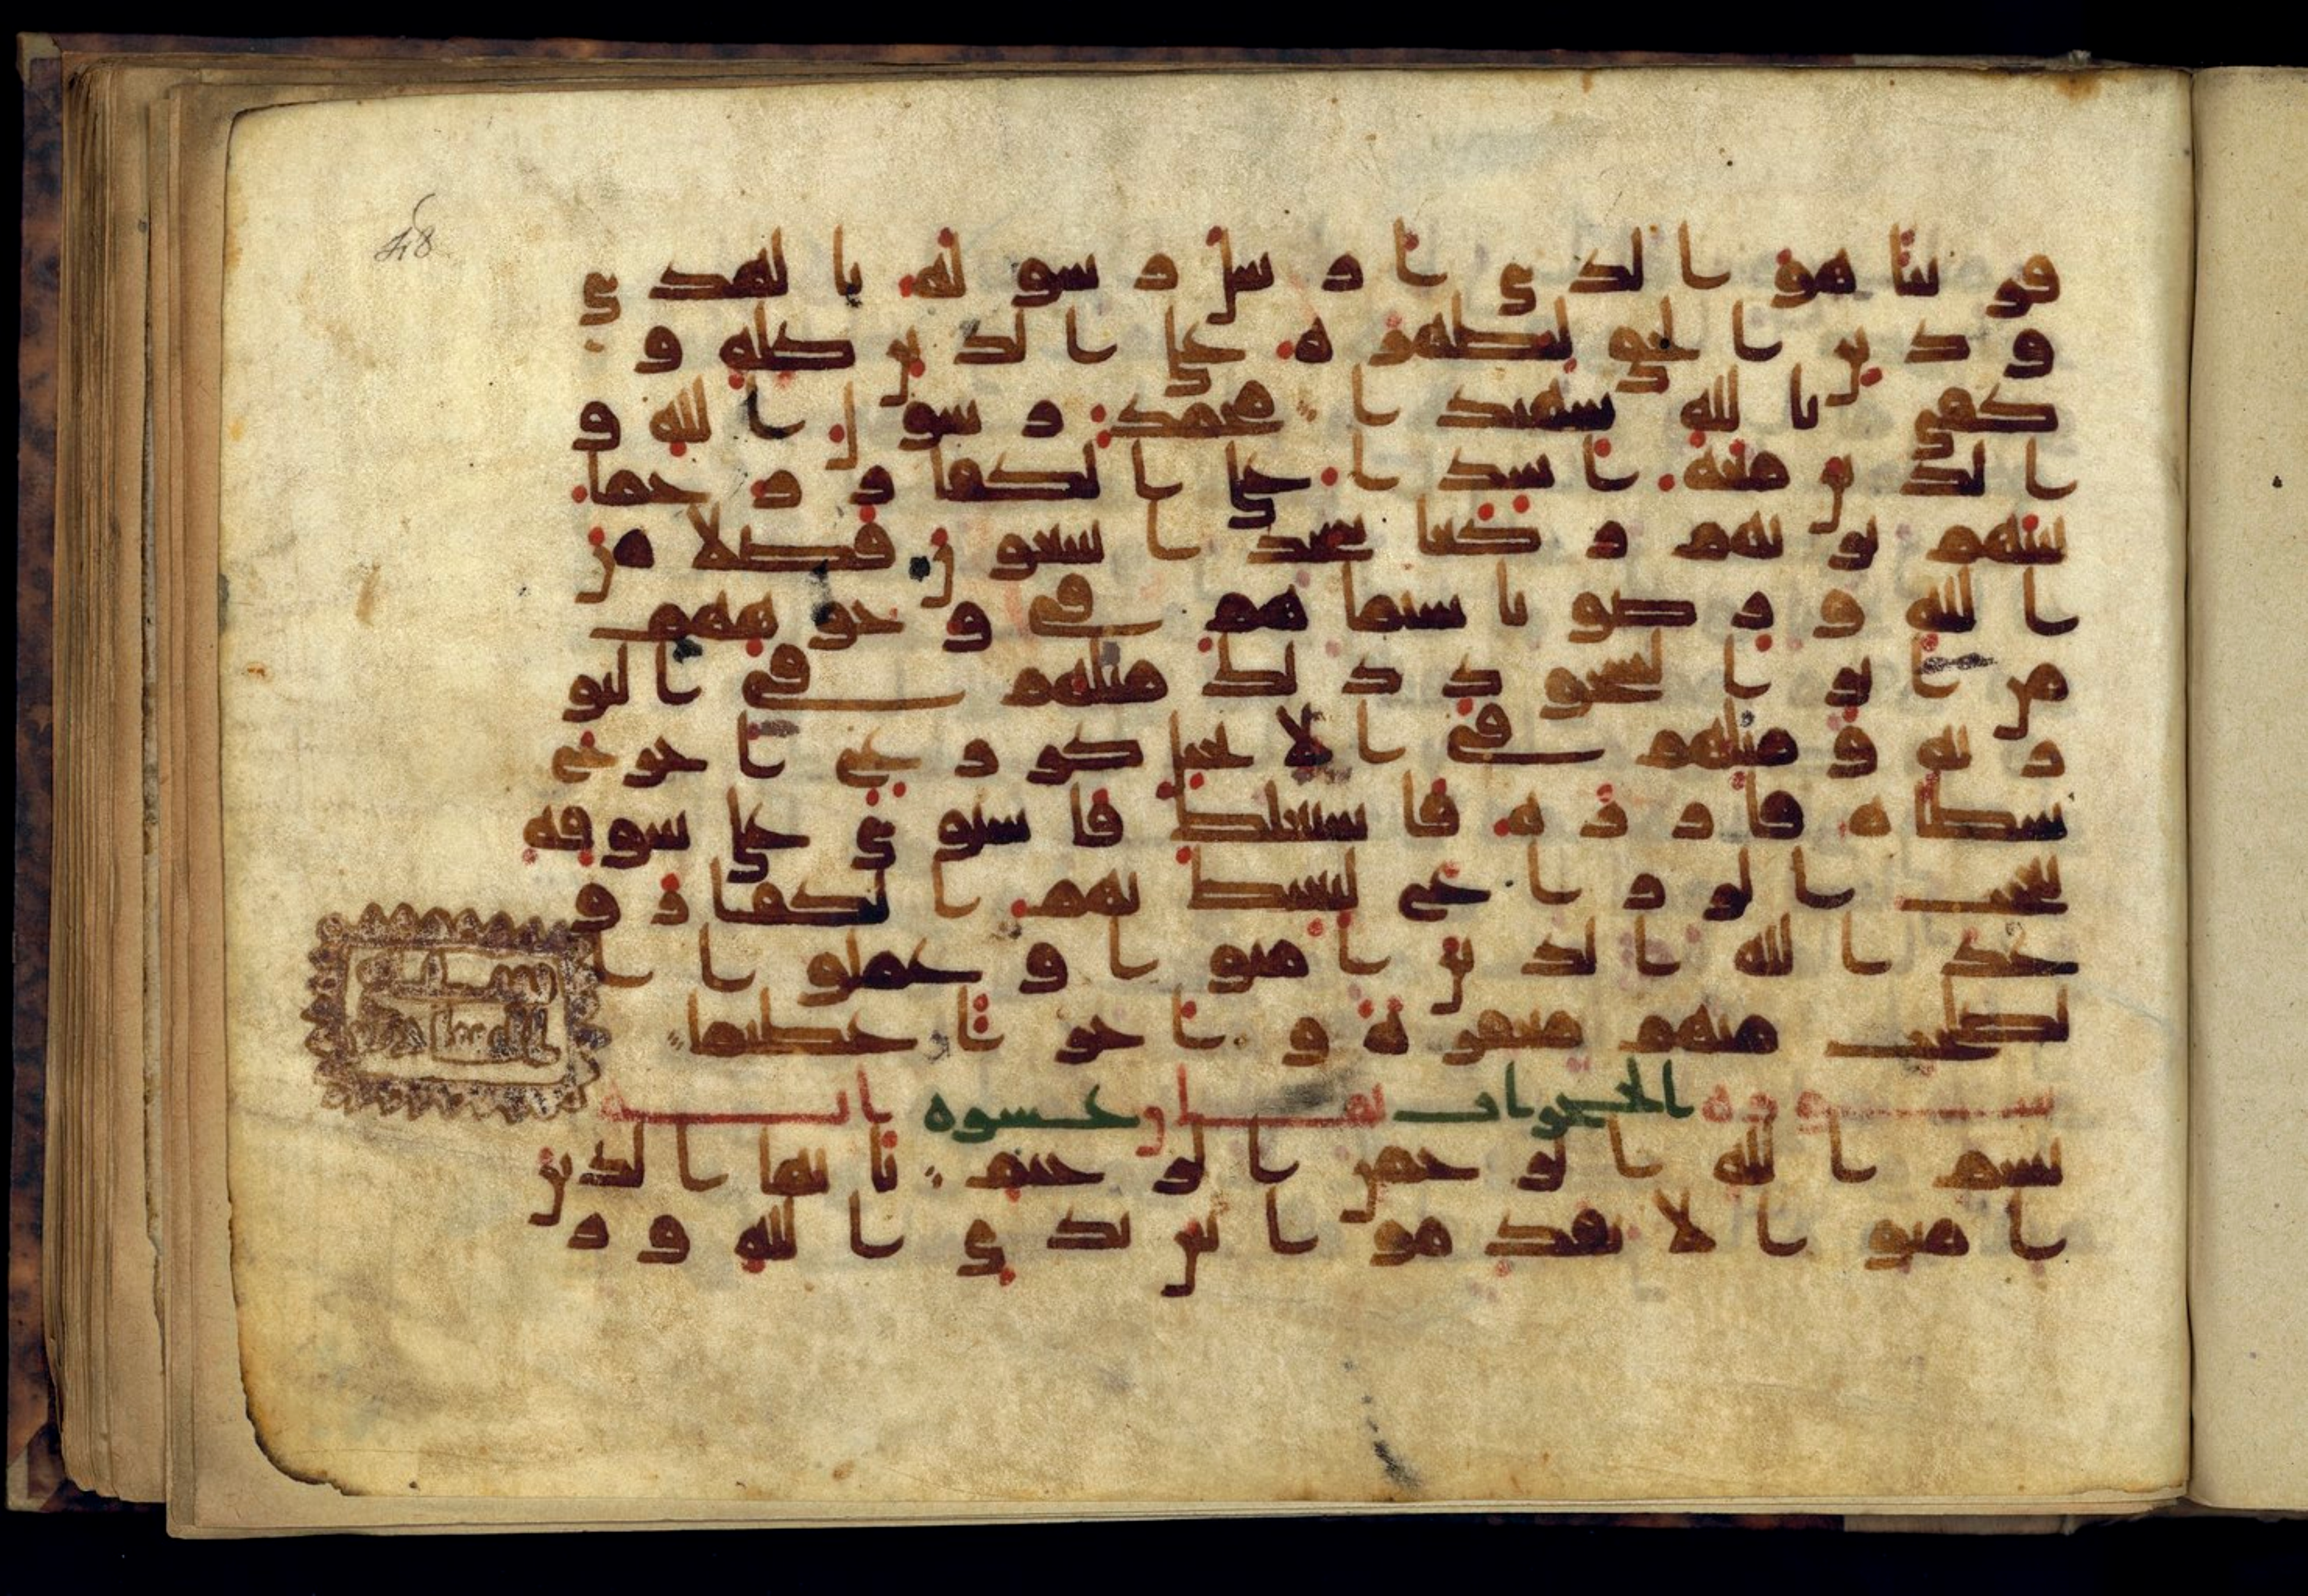 48
قريبا هو الذي ارسل رسوله بالهدى
ودين الحق ليظهره على الدين كله و
كفى بالله شهيدا محمد رسول الله و
الذين معه اشدا على الكفار رحما
بينهم تريهم ركعا سجدا يبتغون فضلا من
الله ورضونا سيماهم في وجوههم
من اثر السجود ذلك مثلهم في التو
رية ومثلهم في الانجيل كزرع اخرج
شطاه فازره فاستغلظ فاستوى على سوقه
يعجب الزراع ليغيظ بهم الكفار و
عد الله الذين امنوا وعملوا ا
لصلحت منهم مغفرة واجرا عظيما
سورة الحجرات ثمان وعشره ايه
بسم الله الرحمن الرحيم يايها الذين
امنوا لا تقدموا بين يدي الله ور